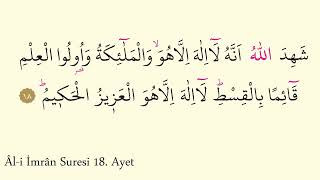 شَهِدَ اللّٰهُ اَنَّهُ لَٓا اِلٰهَ اِلَّا هُوَۙ وَالْمَلٰٓئِكَةُ وَاُو۬لُوا الْعِلْمِ
قَٓائِمًا بِالْقِسْطِۜ لَٓا اِلٰهَ اِلَّا هُوَ الْعَز۪يزُ الْحَك۪يمُۜ ١٨
Âl-i İmrân Suresi 18. Ayet